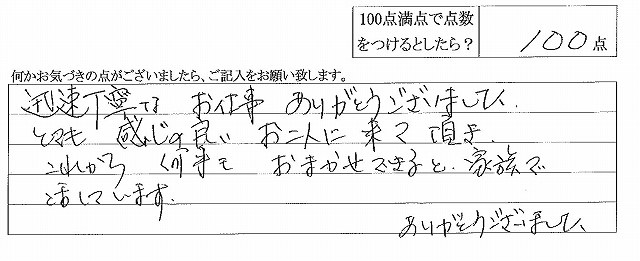 100点満点で点数
をつけるとしたら？
100点
何かお気づきの点がございましたら、ご記入をお願い致します。
迅速丁寧な お仕事 ありがとうございました。
とても 感じの良い お二人に 来て 頂き
これから 何事も おまかせできると、家族で
話しています。
ありがとうございました